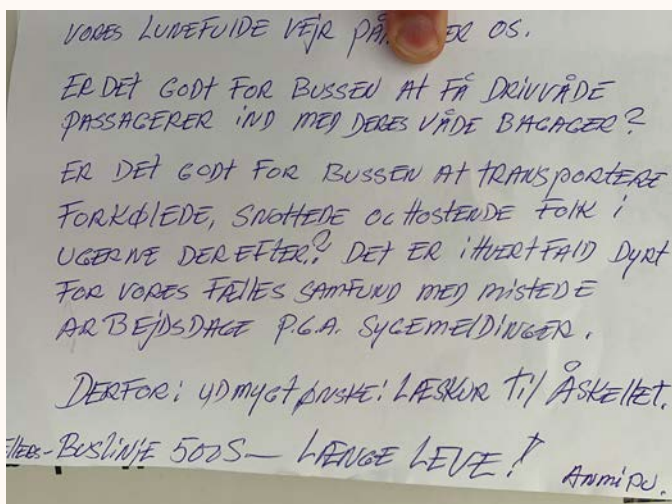 VORES LUNEFULDE VEJR ER OS.
ER DET GODT FOR BUSSEN AT FÅ DRIVVÅDE
PASSAGERER IND MED DERES VÅDE BAGAGER?
ER DET GODT FOR BUSSEN AT TRANSPORTERE
FORKØLEDE, SNOTTEDE OG HOSTENDE FOLK I
UGERNE DEREFTER? DET ER IHVERTFALD DYRT
FOR VORES FÆLLES SAMFUND MED MISTEDE
ARBEJDSDAGE P.G.A. SYGEMELDINGER.
DERFOR: YDMYGT ØNSKE: LÆSKUR TIL ÅSKELLET.
BUSLINJE 500S - LÆNGE LEVE!